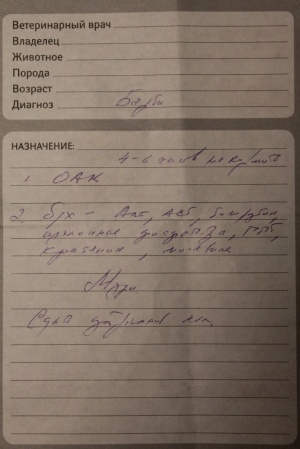 Ветеринарный врач
Владелец
Животное
Порода
Возраст
Диагноз Барби
НАЗНАЧЕНИЕ:
4-6 часов не кормить
1. ОАК
2. б/х - Алт, АСТ, билирубин,
щелочная фосфотаза, ГГТ,
креатинин, мочевина